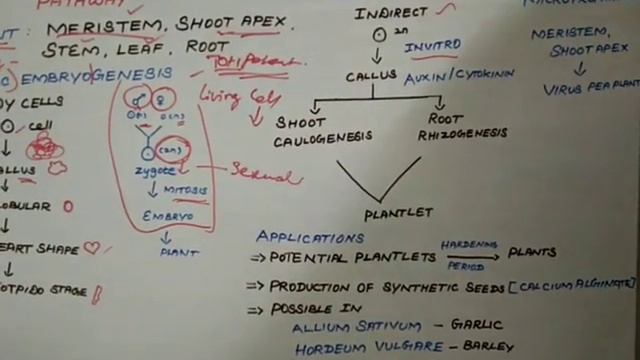 PATHWAY
NT : MERISTEM, SHOOT APEX.
STEM, LEAF, ROOT
C) EMBRYOGENESIS
Totipotent.
DY CELLS
cell
ALLUS
OBULAR
EART SHAPE
OTPIDO STAGE
♂ ♀
(n) (n)
(2n)
zygote
MITOSIS
EMBRYO
PLANT
Living Cells
Sexual
INDIRECT
2n
INVITRO
CALLUS AUXIN/CYTOKININ
SHOOT
CAULOGENESIS
ROOT
RHIZOGENESIS
PLANTLET
MERISTEM,
SHOOT APEX
VIRUS PEA PLANT
APPLICATIONS
⇒ POTENTIAL PLANTLETS HARDENING PERIOD → PLANTS
⇒ PRODUCTION OF SYNTHETIC SEEDS [CALCIUM ALGINATE]
⇒ POSSIBLE IN
ALLIUM SATIVUM – GARLIC
HORDEUM VULGARE – BARLEY